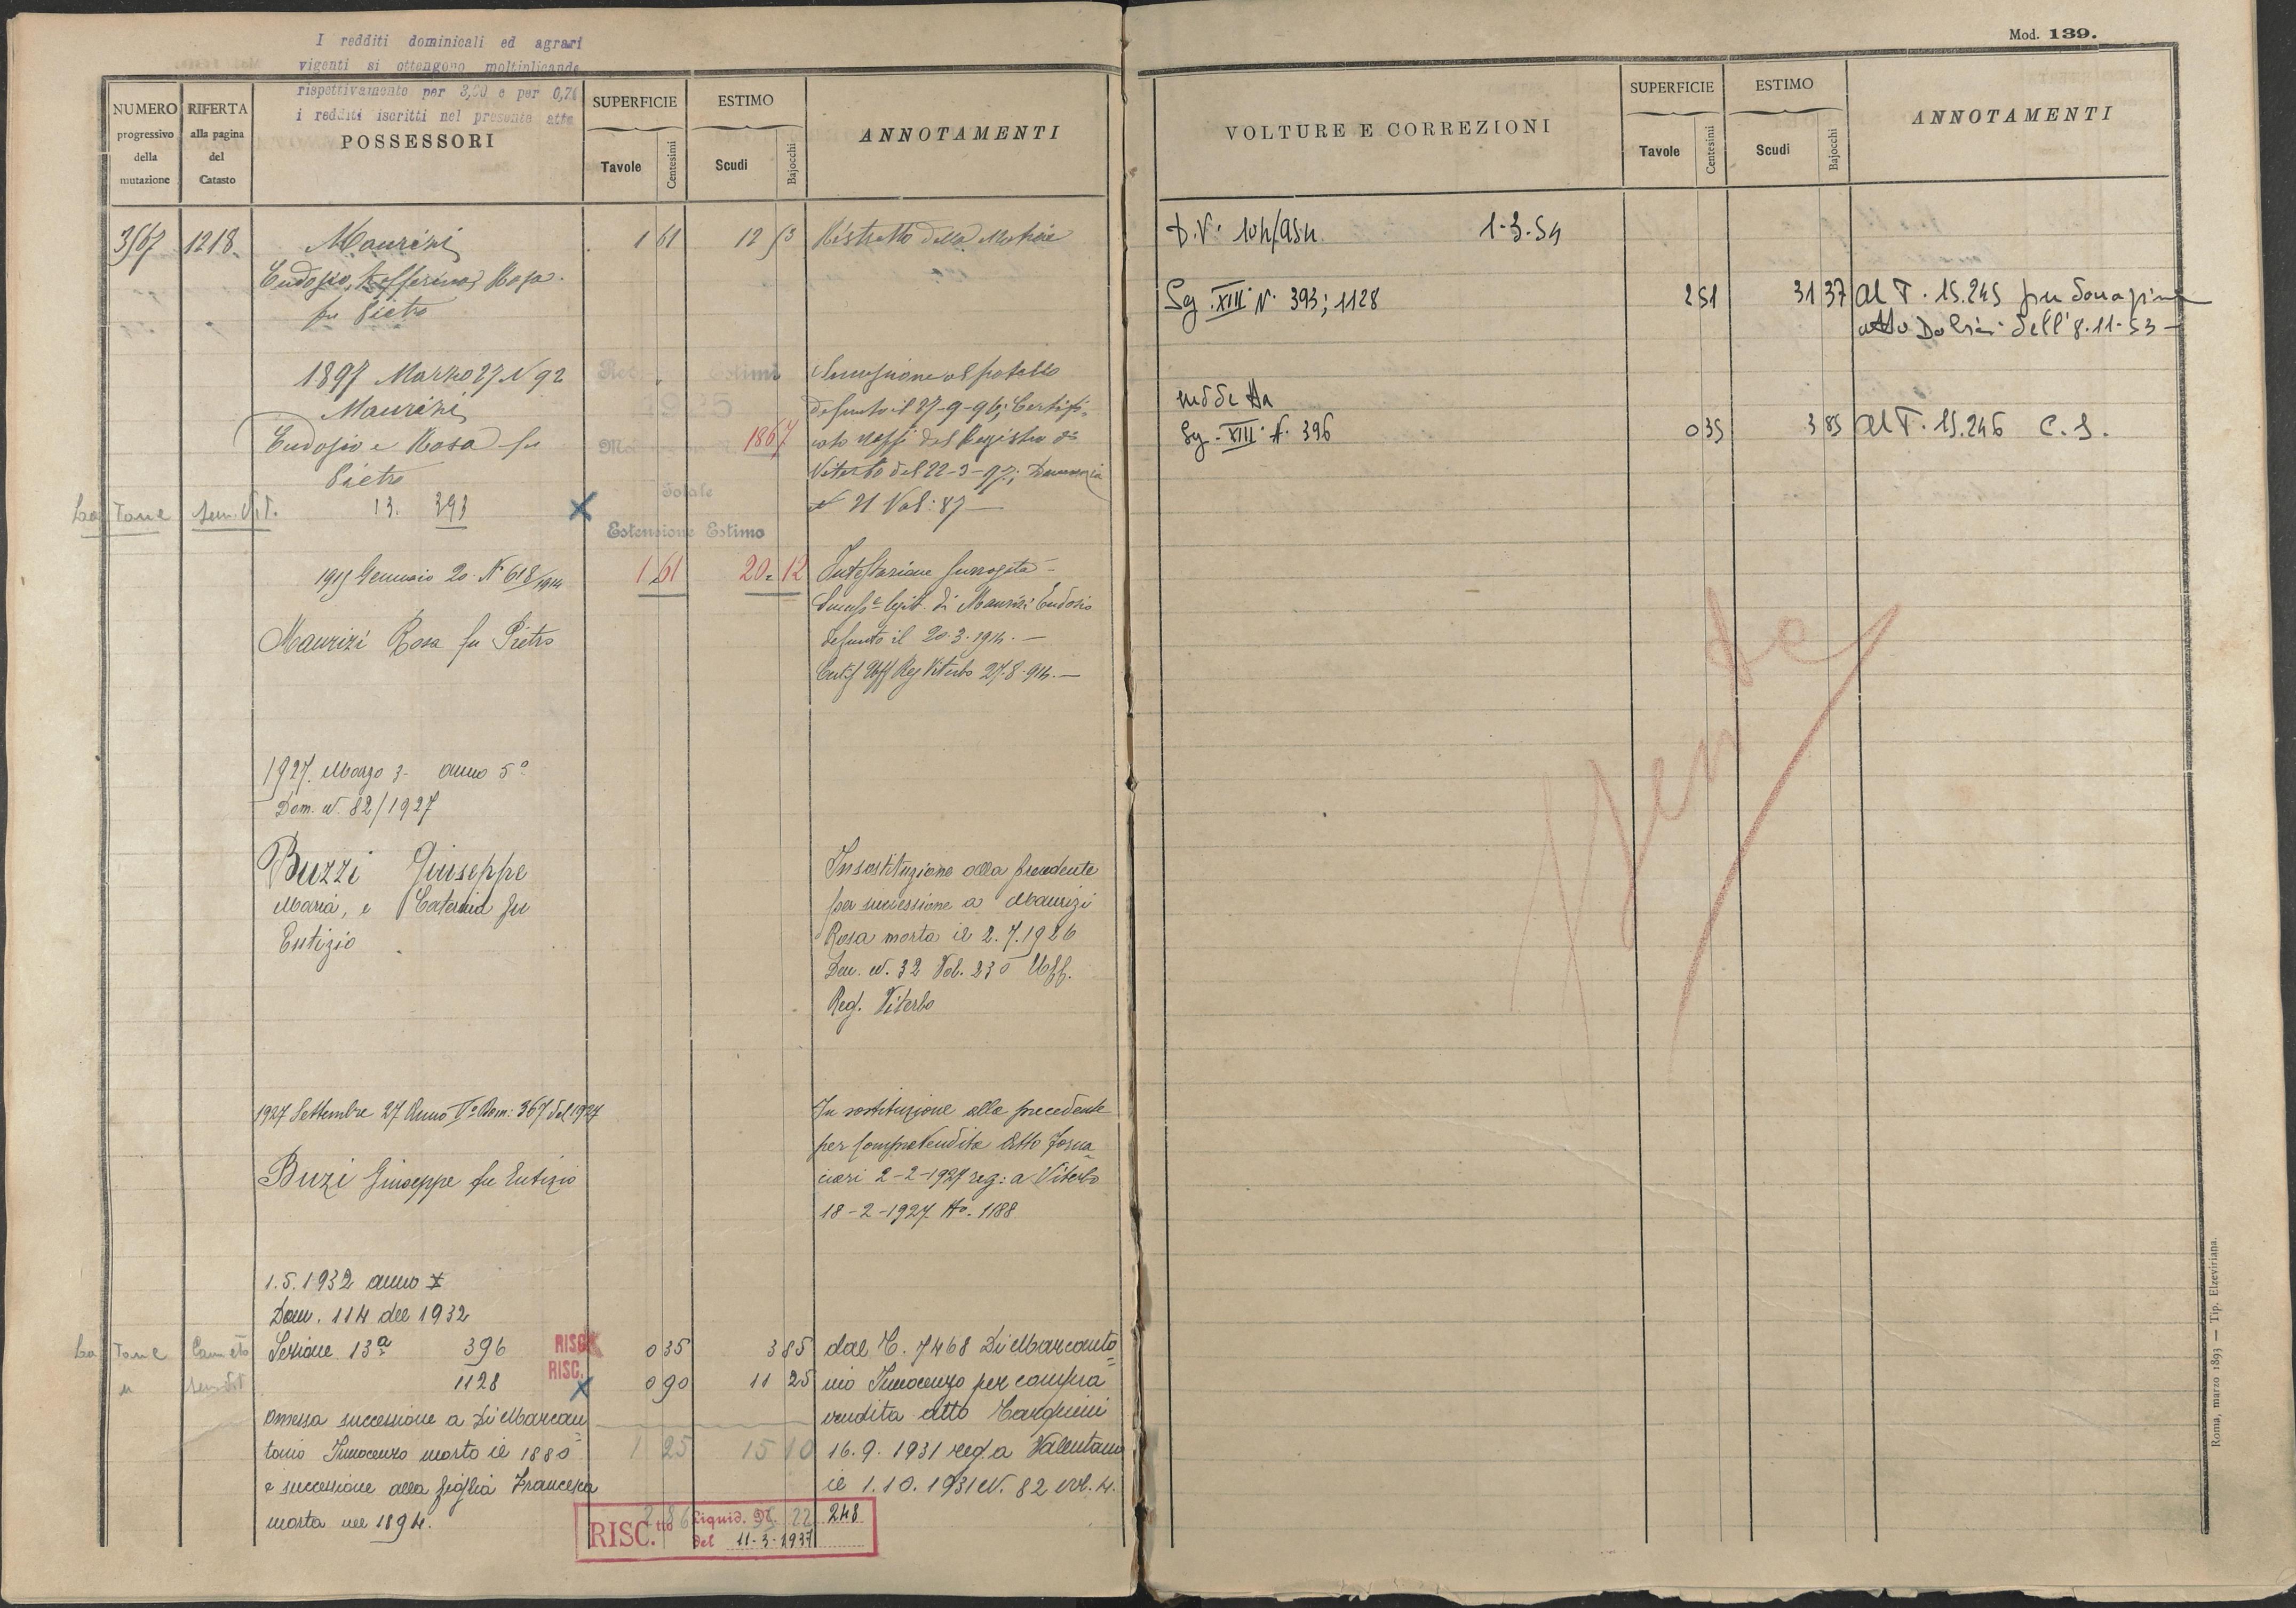 I redditi dominicali ed agrari
vigenti si ottengono moltiplicando
rispettivamente per 3,00 e per 0,74
i redditi iscritti nel presente atto
NUMERO progressivo della mutazione
RIFERTA alla pagina del Catasto
POSSESSORI
SUPERFICIE
Tavole Centesimi
ESTIMO
Scudi Bajocchi
ANNOTAMENTI
3567 1218. Maurizi 1 61 12 53 Ristretto della Matrice
Eudosio, Zefferino e Rosa
fu Pietro
1897 Marzo 27 N 92 Successione al fratello
Maurizi defunto il 27-9-96; Certifi-
Eudosio e Rosa fu 1867 cato Uffi del Registro di
Pietro Viterbo del 22-3-97; Denunzia
La Tane Sem. Vit. 13. 393 N 21 Vol: 87
Totale
Estensione Estimo
1915 Gennaio 20. N 618/1914 1 61 20=12 Intestazione surrogata-
Success.e legit. di Maurizi Eudosio
defunto il 20.3.1914.—
Maurizi Rosa fu Pietro
Certif Uff Reg Viterbo 27-8-914.—
1927. Marzo 3- anno 5°
Dom. N. 82/1927
Buzzi Giuseppe In sostituzione alla precedente
Maria, e Caterina fu per successione a Maurizi
Eutizio Rosa morta il 2.7.1926
Den. N. 32 Vol. 230 Uff.
Reg. Viterbo
1927 Settembre 27 Anno V° Dom: 367 del 1927 In sostituzione alla precedente
per Compravendita Atto Forna-
Buzi Giuseppe fu Eutizio ciari 2-2-1927 reg: a Viterbo
18-2-1927 No. 1188
1.5.1932 anno X
Dom. 114 del 1932
La Tane Canneto Sezione 13a 396 RISC. 0 35 3 85 dal T. 7468 Di Marcanto=
" Sem Vit 1128 RISC. 0 90 11 25 nio Innocenzo per compra
Omessa successione a Di Marcan= vendita atto Tarquini
tonio Innocenzo morto il 1880 1 25 15 10 16.9.1931 reg. a Valentano
e successione alla figlia Francesca il 1.10.1931 N. 82 vol. 4.
morta nel 1894.
2 86 22
RISC.tto Liquid. N. 248
del 11-3-1937
Mod. 139.
VOLTURE E CORREZIONI
SUPERFICIE
Tavole Centesimi
ESTIMO
Scudi Bajocchi
ANNOTAMENTI
D.V. 104/954 1-3-54
Sez. XIII N. 393; 1128 2 51 31 37 Al T. 15.245 per donazione
atto Dobrini dell' 8.11.53 -
Sez. XIII N. 396 0 35 3 85 Al T. 15.246 C.S.
Roma, marzo 1893 — Tip. Elzeviriana.